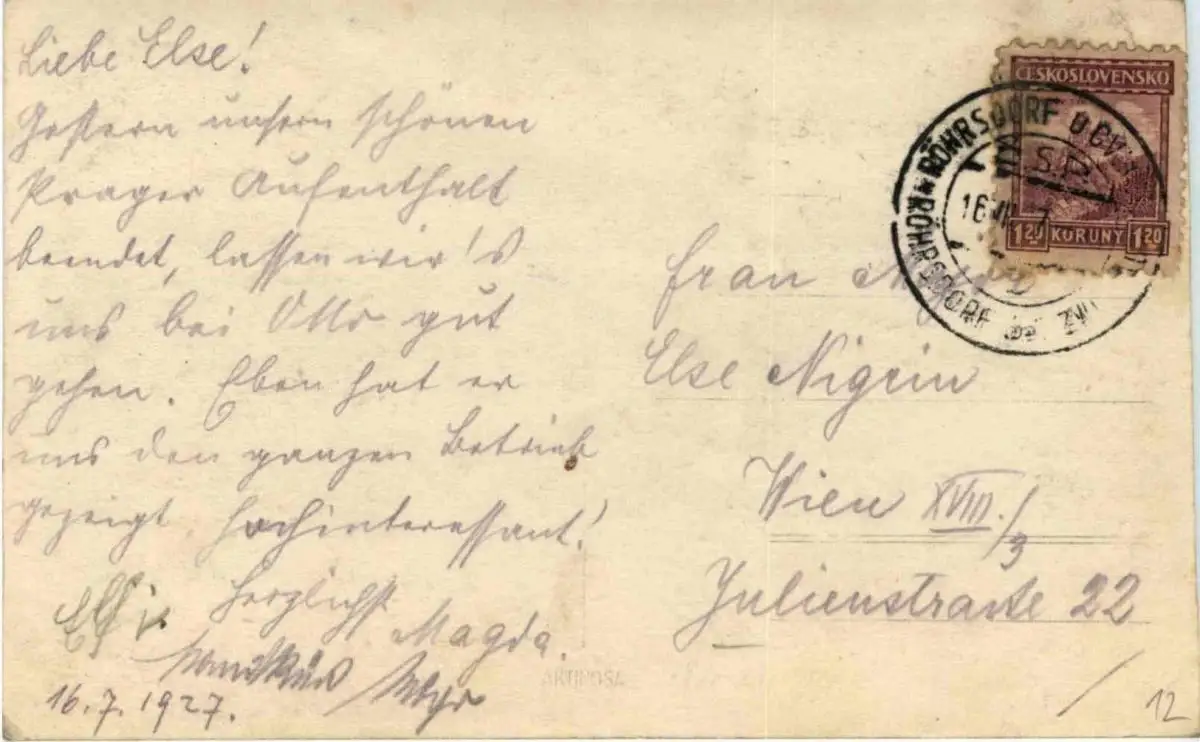 Liebe Else!
Gestern unsern schönen
Prager Aufenthalt
beendet, lassen wir's
uns bei Otto gut
gehen. Eben hat er
uns den ganzen Betrieb
gezeigt. Hochinteressant!
Herzlichst
Magda.
16.7.1927.
ČESKOSLOVENSKO
1.20 KORUNY 1.20
RÖHRSDORF
RÖHRSDORF
16 VII
Frau
Else Nigrin
Wien XVIII./3
Julienstraße 22
ARTIPOSA
12